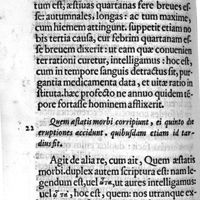 tum est, æstiuas quartanas fere breues es-
se: autumnales, longas: ac tum maxime,
cum hiemem attingunt. suppetit etiam no
bis tertia causa, cur febrim quartanam es-
se breuem dixerit: ut eam quæ conuenien
ter rationi curetur, intelligamus: hoc est,
cum in tempore sanguis detractus sit, pur-
gantia medicamenta data, et uitæ ratio in
stituta. hæc profecto ne annuo quidem té-
pore fortasse hominem afflixerit.
23 Quem æstatis morbi corripiunt, ei quinto die
eruptiones accidunt, quibusdam etiam id tar-
dius fit.
Agit de alia re, cum ait, Quem æstatis
morbi. duplex autem scriptura est: nam le
gendum est, uel ut autres intelligamus:
uel hoc est, quem: ut nos utranque ex